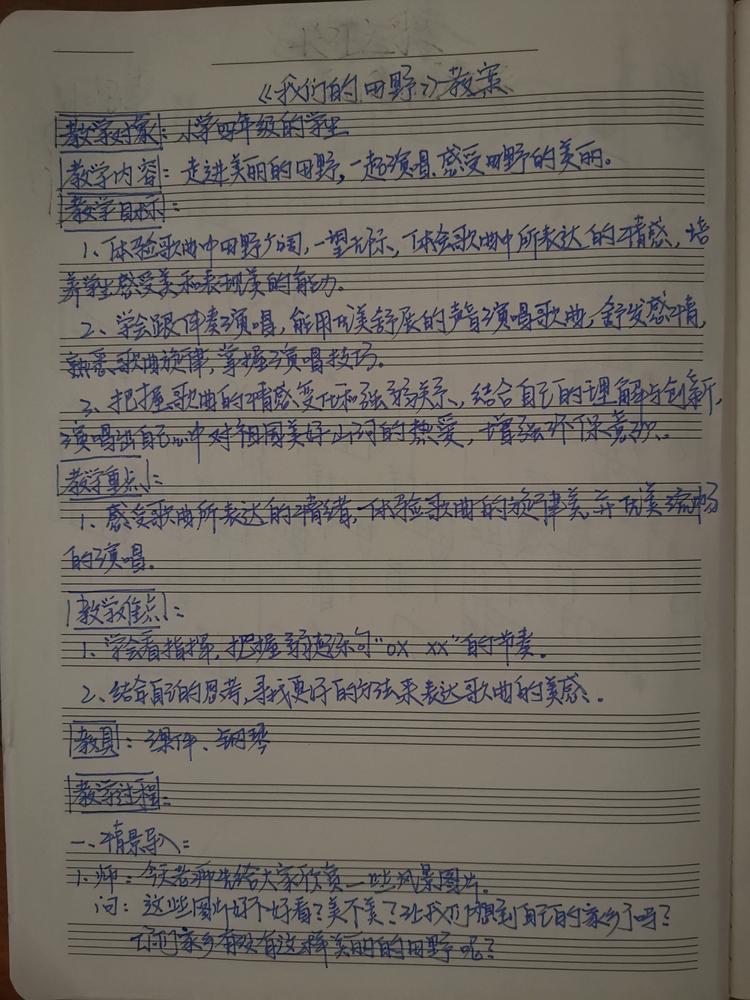 《我们的田野》教案
教学对象：小学四年级的学生
教学内容：走进美丽的田野，一起演唱、感受田野的美丽。
教学目标：
1、体验歌曲中田野广阔，一望无际、体会歌曲中所表达的情感，培
养学生感受美和表现美的能力。
2、学会跟伴奏演唱，能用优美舒展的声音演唱歌曲，舒发感情，
熟悉歌曲旋律，掌握演唱技巧。
3、把握歌曲的情感变化和强弱关系、结合自己的理解与创新，
演唱出自己心中对祖国美好山河的热爱，增强环保意识。
教学重点：
1、感受歌曲所表达的情绪，体验歌曲的旋律美，并优美流畅
的演唱。
教学难点：
1、学会看指挥，把握弱起乐句“0X XX”的节奏。
2、结合自己的思考，寻找更好的方法来表达歌曲的美感。
教具：课件、钢琴
教学过程：
一、情景导入：
1.师：今天老师先给大家欣赏一些风景图片。
问：这些图片好不好看？美不美？让我们想到自己的家乡了吗？
你们家乡有没有这样美丽的田野呢？